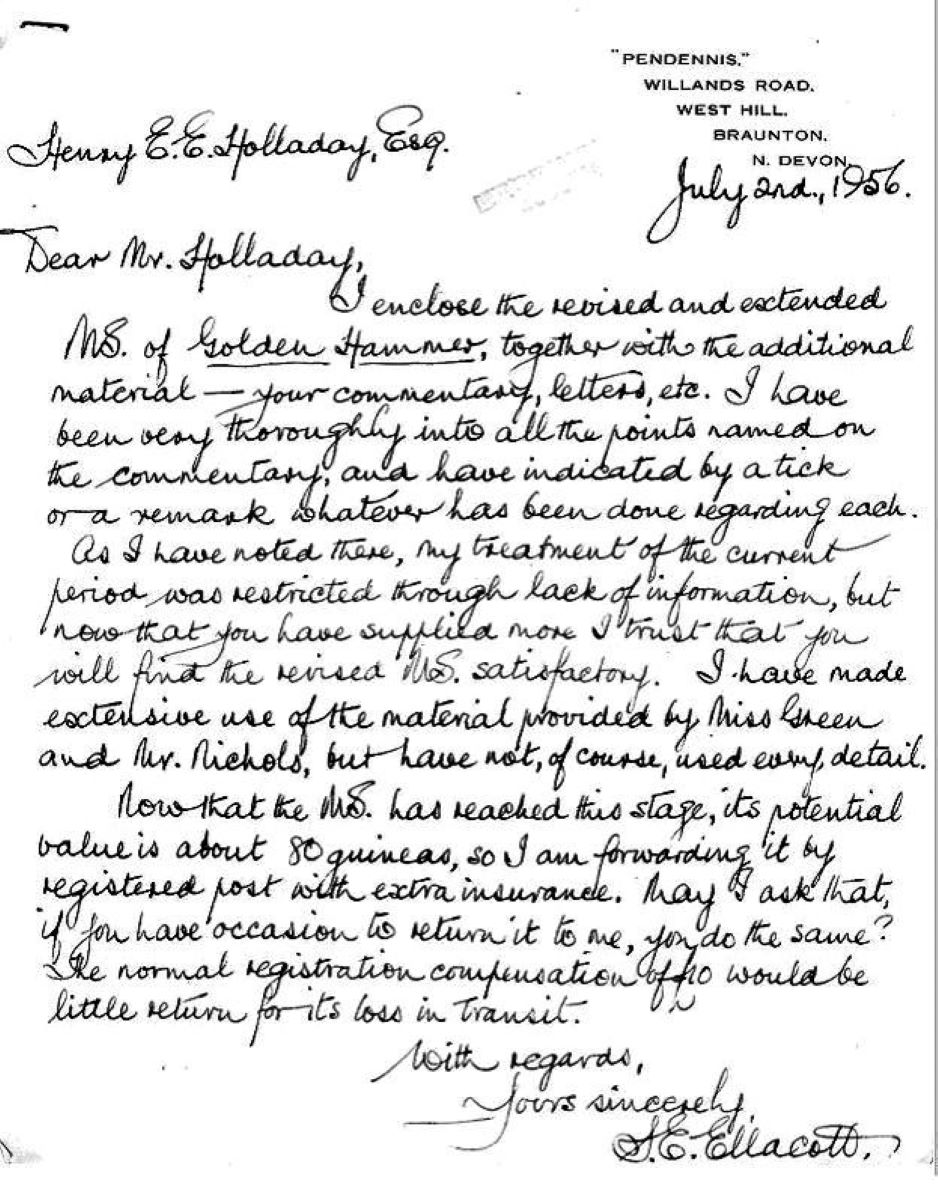 "PENDENNIS."
WILLANDS ROAD.
WEST HILL.
BRAUNTON.
N. DEVON.
Henry E. E. Holladay, Esq.
July 2nd., 1956.
Dear Mr. Holladay,
I enclose the revised and extended
MS. of Golden Hammer, together with the additional
material — your commentary, letters, etc. I have
been very thoroughly into all the points named on
the commentary, and have indicated by a tick
or a remark whatever has been done regarding each.
As I have noted there, my treatment of the current
period was restricted through lack of information, but
now that you have supplied more I trust that you
will find the revised MS. satisfactory. I have made
extensive use of the material provided by Miss Green
and Mr. Nichols, but have not, of course, used every detail.
Now that the MS. has reached this stage, its potential
value is about 80 guineas, so I am forwarding it by
registered post with extra insurance. May I ask that,
if you have occasion to return it to me, you do the same?
The normal registration compensation of £10 would be
little return for its loss in transit.
With regards,
Yours sincerely,
S. E. Ellacott.